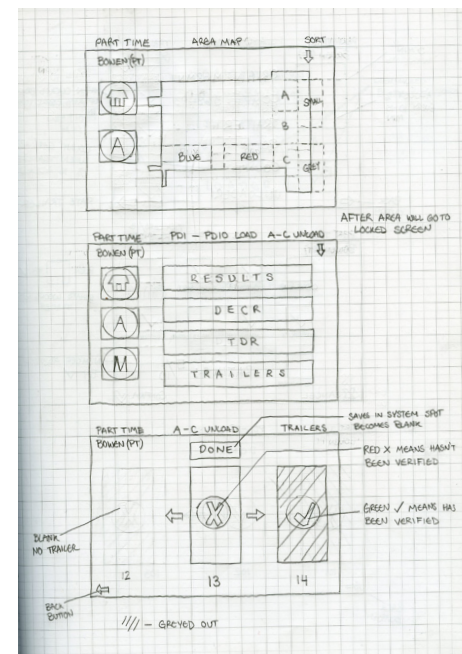 PART TIME AREA MAP SORT
BOWEN (PT)
A
A
SMALL
B
BLUE RED C GREY
AFTER AREA WILL GO TO
LOCKED SCREEN
PART TIME PD1 - PD10 LOAD A-C UNLOAD
BOWEN (PT)
RESULTS
A
DECR
TDR
M
TRAILERS
PART TIME A-C UNLOAD TRAILERS
SAVES IN SYSTEM SPOT
BECOMES BLANK
BOWEN (PT)
DONE
RED X MEANS HASN'T
BEEN VERIFIED
X
GREEN ✓ MEANS HAS
BEEN VERIFIED
BLANK
NO TRAILER
12 13 14
BACK
BUTTON
//// - GREYED OUT